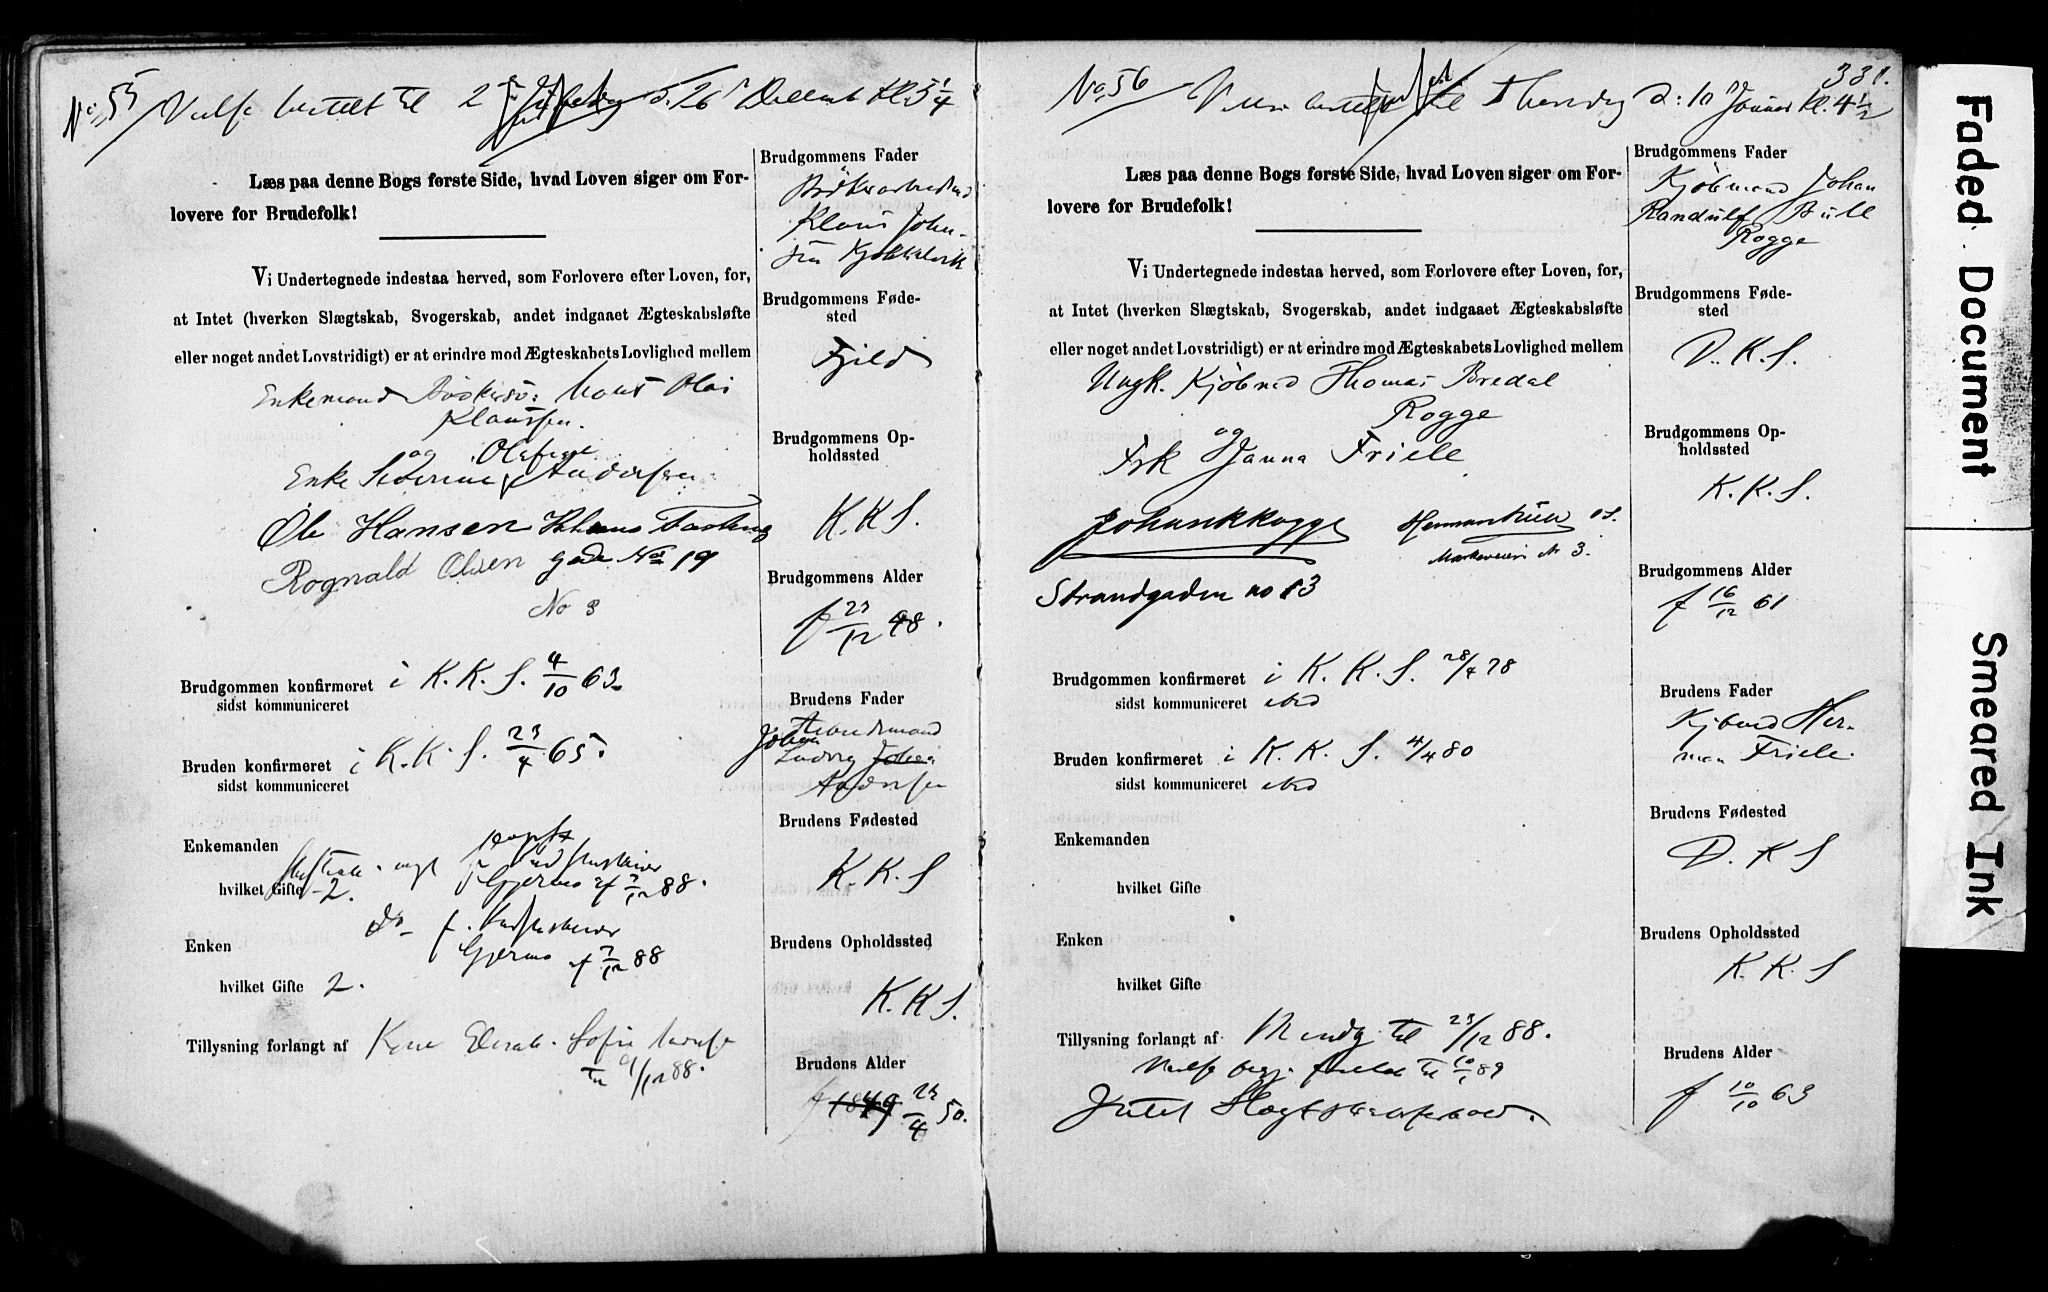 No. 55 Vielse bestilt til 2 Juledag d. 26 Decemb Kl. 3 1/4
Læs paa denne Bogs første Side, hvad Loven siger om For-
lovere for Brudefolk!
Vi Undertegnede indestaa herved, som Forlovere efter Loven, for,
at Intet (hverken Slægtskab, Svogerskab, andet indgaaet Ægteskabsløfte
eller noget andet Lovstridigt) er at erindre mod Ægteskabets Lovlighed mellem
Enkemand Hans Olai
Klaussen.
og Olefine
Enke Severine Andersen
Ole Hansen
Rognald Olsen gade No 19
No 3
Brudgommen konfirmeret i K. K. S. 4/10 63
sidst kommuniceret
Bruden konfirmeret i K. K. S. 23/4 65.
sidst kommuniceret
Enkemanden
Gjermo af 7/12 88.
hvilket Gifte 2.
do
Enken Gjermo af 7/12 88
hvilket Gifte 2.
Tillysning forlangt af Sofie
til 9/12 88.
Brudgommens Fader
Klaus John-
sen
Brudgommens Føde-
sted
Fjeld
Brudgommens Op-
holdssted
K. K. S.
Brudgommens Alder
f 23/12 48.
Brudens Fader
Johan
Ludvig Johan
Andersen
Brudens Fødested
K. K. S
Brudens Opholdssted
K. K. S.
Brudens Alder
f 1849 23/4 50.
331.
No. 56 til Thorsdag d: 10 Januar Kl. 4 1/2
Læs paa denne Bogs første Side, hvad Loven siger om For-
lovere for Brudefolk!
Vi Undertegnede indestaa herved, som Forlovere efter Loven, for,
at Intet (hverken Slægtskab, Svogerskab, andet indgaaet Ægteskabsløfte
eller noget andet Lovstridigt) er at erindre mod Ægteskabets Lovlighed mellem
Ungk. Kjøbmd Thomas Bredal
Rogge
og
Frk Janna Friele
Johan R Rogge Herman Friele
Markeveien No 3.
Strandgaden no 83
Brudgommen konfirmeret i K. K. S. 28/4 78
sidst kommuniceret ibid
Bruden konfirmeret i K. K. S. 4/4 80
sidst kommuniceret ibid
Enkemanden
hvilket Gifte
Enken
hvilket Gifte
Tillysning forlangt af Myndg. til 23/12 88.
Vielse til 10/1 89
Intet Slægtskabsforhold.
Brudgommens Fader
Kjöbmand Johan
Randulf Bull
Rogge
Brudgommens Føde-
sted
D. K. S.
Brudgommens Op-
holdssted
K. K. S.
Brudgommens Alder
f 16/12 61
Brudens Fader
Kjøbmd Her-
man Friele.
Brudens Fødested
D. K S
Brudens Opholdssted
K. K. S
Brudens Alder
f 10/10 63
Faded Document
Smeared Ink